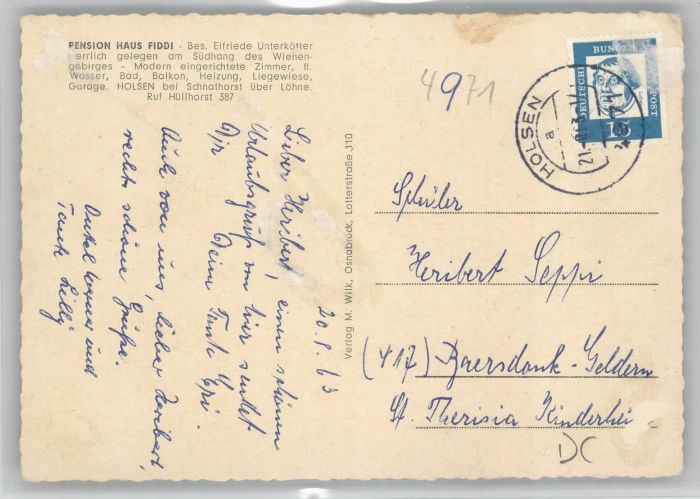 PENSION HAUS FIDDI - Bes. Elfriede Unterkötter
Herrlich gelegen am Südhang des Wiehen-
gebirges - Modern eingerichtete Zimmer, fl.
Wasser, Bad, Balkon, Heizung, Liegewiese,
Garage. HOLSEN bei Schnathorst über Löhne.
Ruf Hüllhorst 387
4971
HOLSEN
a
DEUTSCHE BUNDESPOST
15
20.8.63
Lieber Heribert, einen schönen
Urlaubsgruß von hier sendet
Dir Deine Tante Gri.
Auch von uns, lieber Heribert,
recht schöne Grüße.
Onkel und
Tante Lilly
Verlag M. Wilk, Osnabrück, Lotterstraße 310
Schüler
Heribert Seppi
(417) Baersdonk-Geldern
St. Therisia Kinderhei
DC